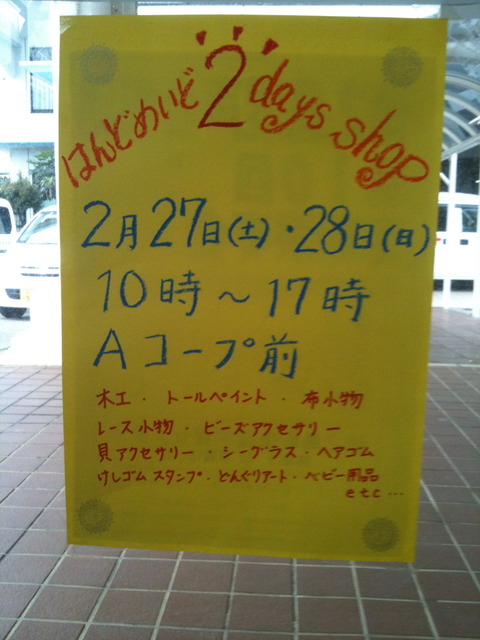 はんどめいど 2 days shop
2月27日(土)・28日(日)
10時〜17時
Aコープ前
木工・トールペイント・布小物
レース小物・ビーズアクセサリー
貝アクセサリー・シーグラス・ヘアゴム
けしゴムスタンプ・どんぐりアート・ベビー用品
etc…